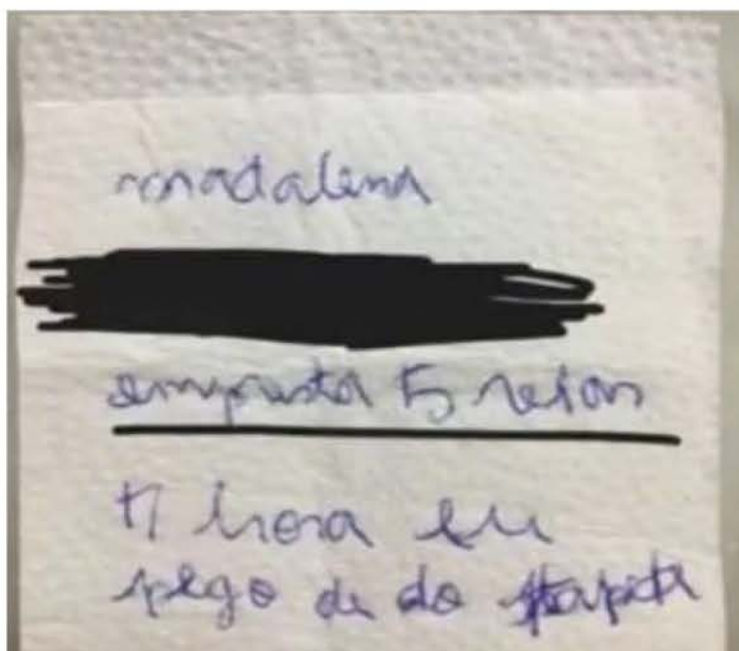 madalena
empresta 5 reias
17 hora eu
pego de do